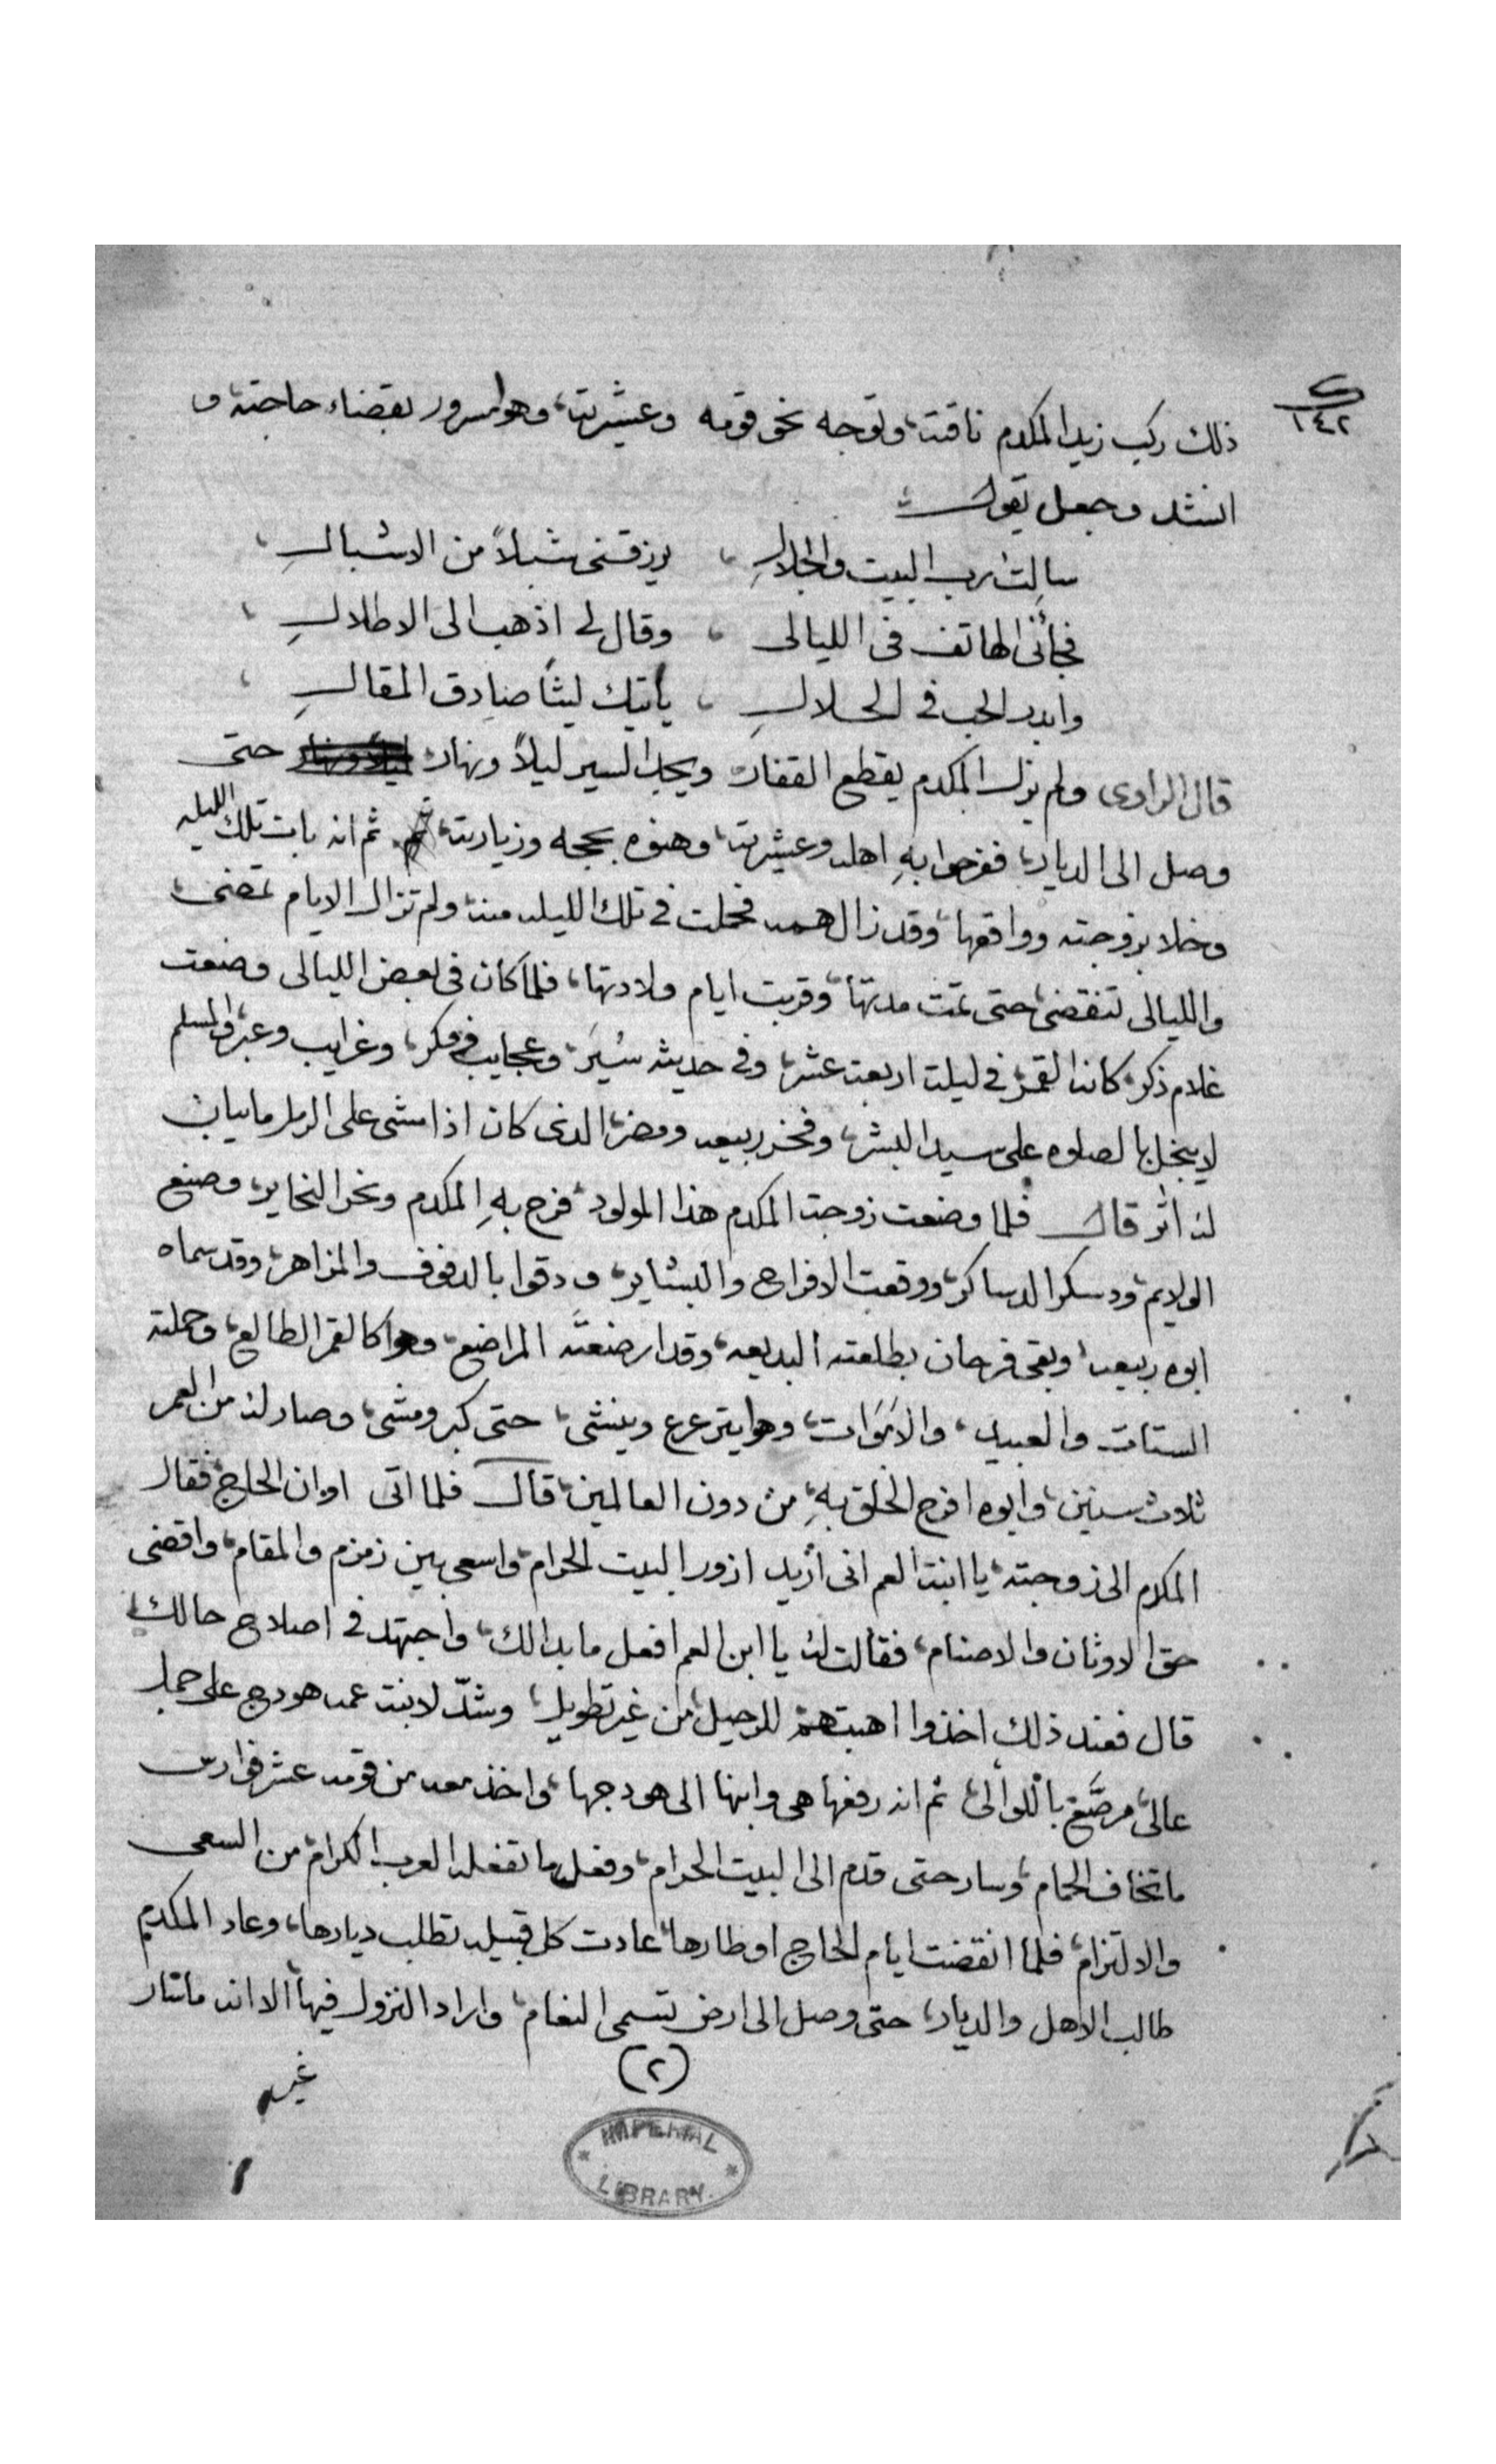 ك
١٤٢
ذلك ركب زيد المكدم ناقته، وتوجه نحو قومه وعشيرته، وهوا مسرور بقضاء حاجته و
انشد وجعل يقول
سالت رب البيت والجلالِ ، يرزقنى شبلاً من الاشبالِ ،
فجأنى الهاتف فى الليالى ، وقال لى اذهب الى الاطلالِ ،
وابدر الحب فى الحلالِ ، يأتيك ليثاً صادق المقالِ ،
قال الراوى ولم يزل المكدم يقطع القفار ويجد السير ليلاً ونهار حتى
وصل الى الديار، ففرحوا بهِ اهله وعشيرته، وهنوه بحجه وزيارته، ثم انه بات تلك الليله
وخلا بزوجته وواقعها، وقد زال همه فحملت فى تلك الليله منه، ولم تزال الايام تمضى،
والليالى تنقضى، حتى تمت مدتها، وقربت ايام ولادتها، فلما كان فى بعض الليالى وضعت
غلام ذكر، كانه القمر، فى ليلت اربعت عشر، وفى حديثه سُيَر، وعجايب وفكر، وغرايب وعبر، والمسلم
لا يبخل بالصلوه على سيد البشر، وفخر ربيعه ومضر، الدى كان اذا مشى على الرمل ما يبان
له اثر قال فلما وضعت زوجت المكدم هذا المولود، فرح بهِ المكدم ونحر النحاير، وصنع
الولايم، ودسكر الدساكر، ووقعت الافراح والبشاير، ودقوا بالدفوف والمزاهر، وقد سماه
ابوه ربيعه، وبقى فرحان بطلعته البديعه، وقد ارضعته المراضع، وهوا كالقمر الطالع، وحملته
الستات والعبيد، والاموات، وهوا يترعرع وينشى، حتى كبر ومشى، وصار له من العمر
ثلاث سنين، وابوه افرح الخلق بهِ، من دون العالمين، قال فلما اتى اوان الحاج، فقال
المكدم الى زوجته، يا ابنت العم انى أريد ازور البيت الحرام، واسعى بين زمزم والمقام، واقضى
حق الاوثان والاصنام، فقالت له يا ابن العم افعل ما بدالك، واجتهد فى اصلاح حالك،
قال فعند ذلك اخذوا اهبتهم للرحيل، من غير تطويل، وشدّ لابنت عمه هودج على جمل
عالى، مرصَّع باللوألى، ثم انه رفعها هى وابنها الى هودجها، واخذ معه من قومه عشر فوارس
ما تخاف الحمام، وسار حتى قدم الى البيت الحرام، وفعل ما تفعله العرب الكرام، من السعى
والالتزام، فلما انقضت ايام الحاج اوطارها، عادت كل قبيله تطلب ديارها، وعاد المكدم
طالب الاهل والديار، حتى وصل الى ارض تسمى النعام، واراد النزول فيها، الا انه ما
(٢)
غير
IMPERIAL
LIBRARY.